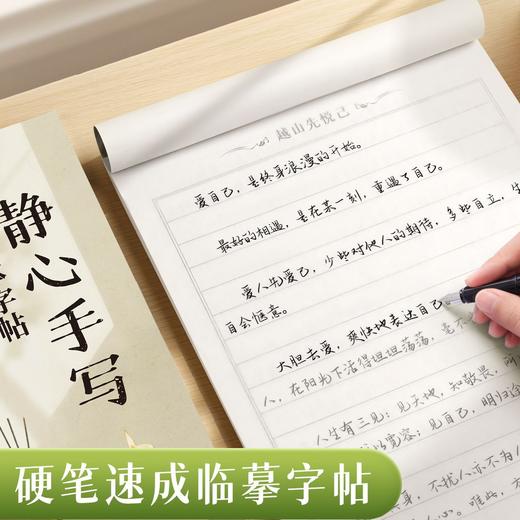 静心手写
字帖
越山先悦己
爱自己，是终身浪漫的开始。
最好的相遇，是在某一刻，重遇了自己。
爱人先爱己，少些对他人的期待，多些自立，生
自会惬意。
大胆去爱，爽快地表达自己
人，在阳光下活得坦坦荡荡，毫不
人生有三见：见天地，知敬畏，所
以宽容；见自己，明归途
身，不扰人亦不为人
心。唯此，方
硬笔速成临摹字帖